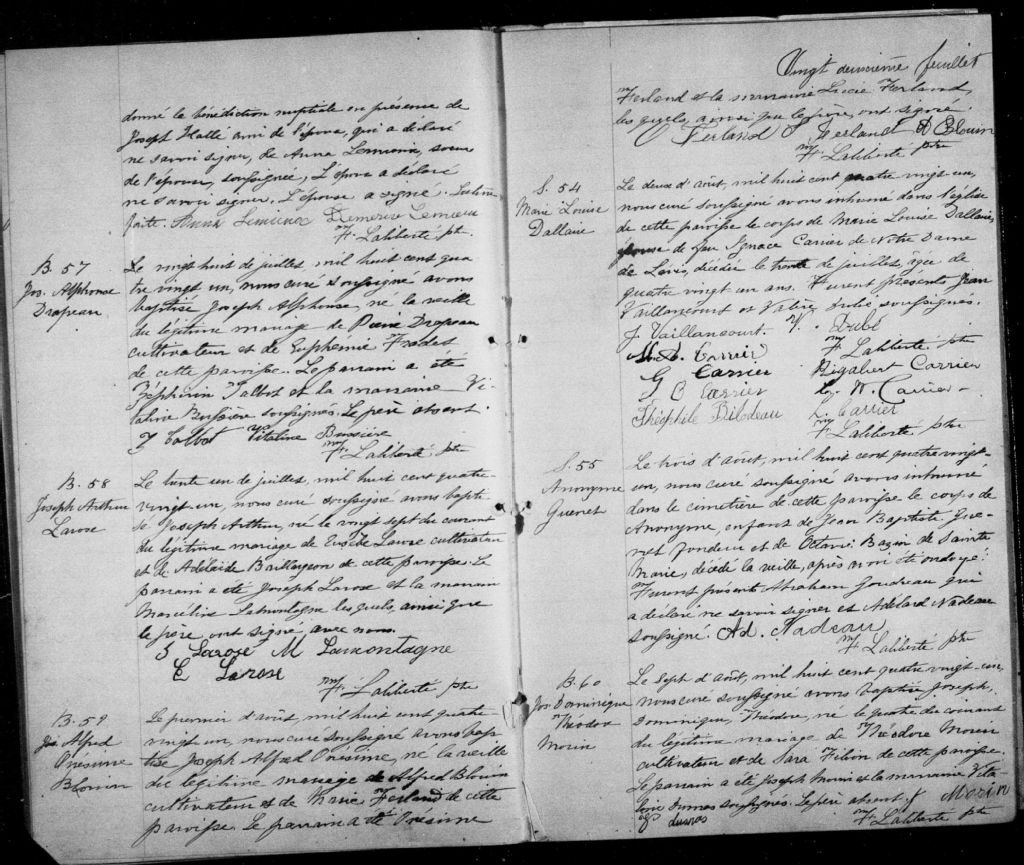 donné la bénédiction nuptiale en présence de
Joseph Hallé ami de l'époux, qui a déclaré
ne savoir signer, de Anna Lemieux, soeur
de l'épouse, soussignée, L'époux a déclaré
ne savoir signer. L'épouse a signé. Lecture
faite. Anna Lemieux Demerise Lemieux
F. Laliberté ptr.
B. 57
Jos. Alphonse
Drapeau
Le vingt huit de juillet, mil huit cent qua
tre vingt un, nous curé soussigné avons
baptisé Joseph Alphonse, né la veille
du légitime mariage de Pierre Drapeau
cultivateur et de Euphémie Fradet
de cette paroisse. Le parrain a été
Zéphirin Talbot et la marraine Vi-
taline Bussière soussignés. Le père absent.
Z Talbot Vitaline Bussière
F. Laliberté, ptr
B. 58
Joseph Arthur
Larose
Le trente un de juillet, mil huit cent quatre-
vingt-un, nous curé soussigné avons bapti-
sé Joseph Arthur, né le vingt sept du courant
du légitime mariage de Eusèbe Larose cultivateur
et de Adélaïde Baillargeon de cette paroisse. Le
parrain a été Joseph Larose et la marraine
Marcéline Lamontagne lesquels, ainsi que
le père ont signé avec nous.
J Larose M Lamontagne
E Larose
F. Laliberté ptr
B. 59
Jos Alfred
Onésime
Blouin
Le premier d'août, mil huit cent quatre-
vingt-un, nous curé soussigné avons bap
tisé Joseph Alfred Onésime, né la veille
du légitime mariage de Alfred Blouin
cultivateur et de Marie Ferland de cette
paroisse. Le parrain a été Onésime
Vingt deuxième feuillet
Ferland et la marraine Lucie Ferland,
lesquels, ainsi que le père, ont signé.
O Ferland L Ferland A Blouin
F. Laliberté ptr
S. 54
Marie Louise
Dallaire
Le deux d'août, mil huit cent quatre vingt un,
nous curé soussigné avons inhumé dans l'église
de cette paroisse le corps de Marie Louise Dallaire,
épouse de feu Ignace Carrier de Notre Dame
de Lévis, décédée le trente de juillet, âgée de
quatre vingt un ans. Furent présents Jean
Vaillancourt et Valère Dubé soussignés.
J. Vaillancourt. V. Dubé
F. Laliberté, ptr
M. A. Carrier
Rigobert Carrier
G Carrier
B Carrier
W. Carrier
Théophile Bilodeau
L. Carrier
F. Laliberté, ptr
S. 55
Anonyme
Guenet
Le trois d'août, mil huit cent quatre vingt-
un, nous curé soussigné avons inhumé
dans le cimetière de cette paroisse le corps de
Anonyme, enfant de Jean Baptiste Gue-
net fondeur et de Octavie Bazin de Sainte
Marie, décédé la veille, après avoir été ondoyé.
Furent présents Abraham Goudreau qui
a déclaré ne savoir signer et Adélard Nadeau
soussigné. Ad. Nadeau
F. Laliberté ptr
B. 60
Jos Dominique
Théodore
Morin
Le sept d'août, mil huit cent quatre vingt-un,
nous curé soussigné avons baptisé Joseph,
Dominique, Théodore, né le quatre du courant
du légitime mariage de Théodore Morin
cultivateur et de Sara Filion de cette paroisse.
Le parrain a été Joseph Morin et la marraine
Dumas soussignés. Le père absent. J Morin
Dumas
F. Laliberté ptr